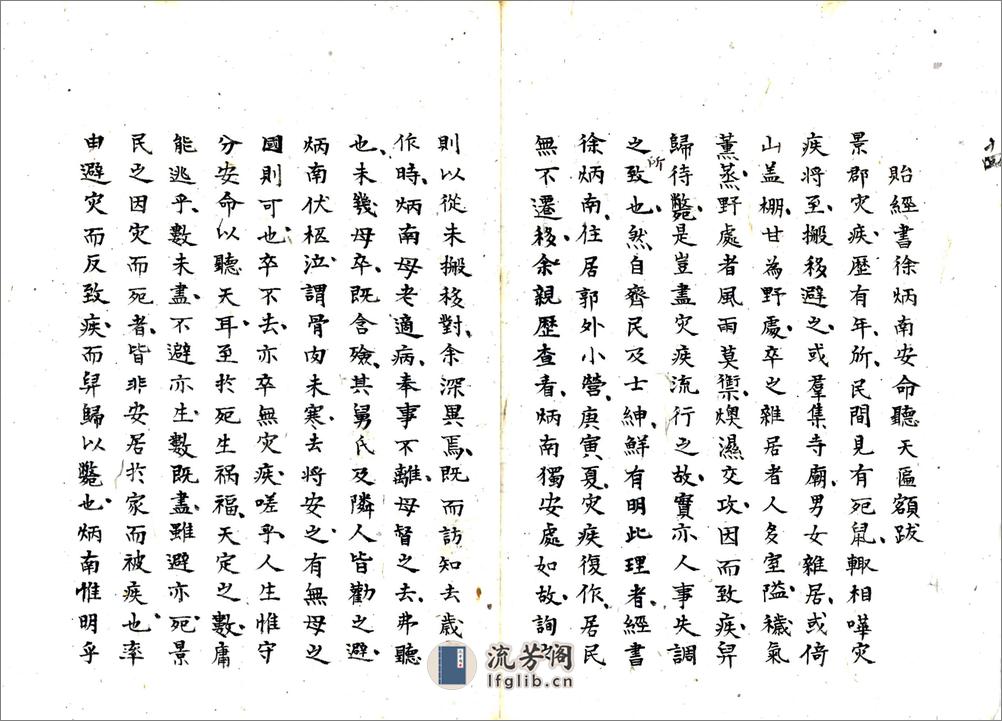 貽經書徐炳南安命聽天匾額跋
景郡灾疾歷有年所、民間見有死鼠、輙相嘩灾
疾將至、搬移避之、或羣集寺廟、男女雜居、或倚
山盖棚、甘為野處、卒之雜居者人多室隘、穢氣
薰蒸、野處者風雨莫禦、燠濕交攻、因而致疾、舁
歸待斃、是豈盡灾疾流行之故、實亦人事失調
之所致也、然自齊民及士紳、鮮有明此理者、經書
徐炳南、往居郭外小營、庚寅夏、灾疾復作、居民
無不遷移、余親歷查看、炳南獨安處如故、詢之
則以從未搬移對、余深異焉、既而訪知去歲
作時、炳南母老適病、奉事不離、母督之去、弗聽
也、未幾母卒、既含殮、其舅氏及隣人皆勸之避、
炳南伏柩泣謂骨肉未寒、去將安之、有無母之
國則可也、卒不去、亦卒無灾疾、嗟乎、人生惟守
分安命以聽天耳、至於死生禍福、天定之數、庸
能逃乎、數未盡、不避亦生、數既盡、雖避亦死、景
民之因灾而死者、皆非安居於家而被疾也、率
由避灾而反致疾、而舁歸以斃也、炳南惟明乎
流芳阁
lfglib.cn